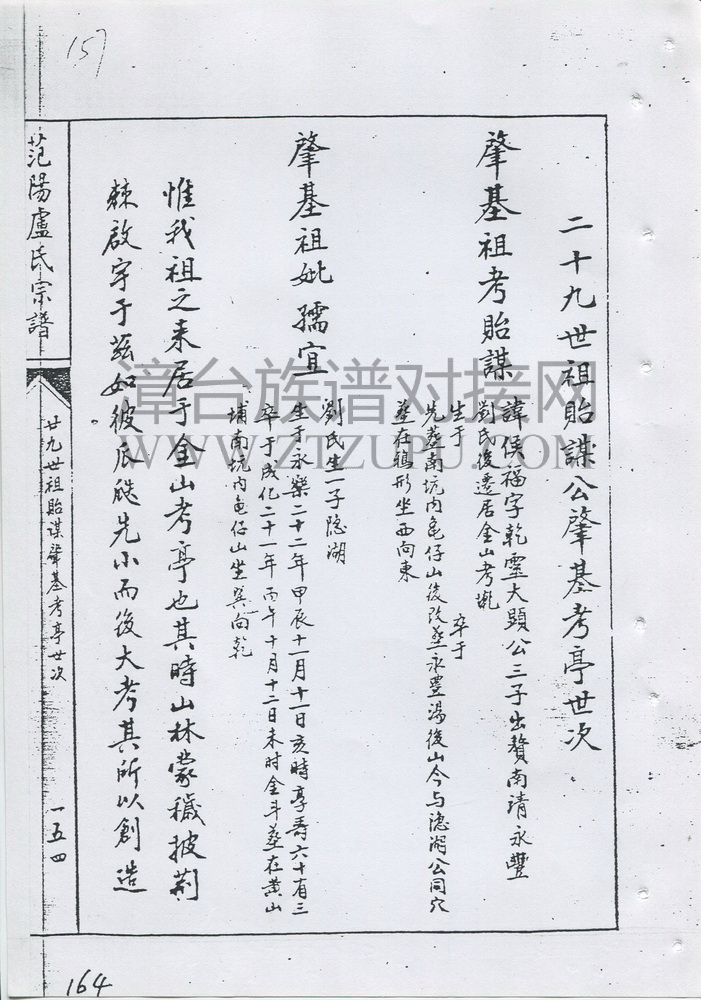 157
二十九世祖貽謀公肇基考亭世次
肇基祖考貽謀
諱侯福字乾靈大顯公三子出贅南靖永豐
劉氏後遷居金山考墘
生于 卒于
先塟南坑内龟仔山後改塟永豊湯後山今与隐湖公同穴
塟在鵶形坐西向東
肇基祖妣孺宜
劉氏生一子隐湖
生于永樂二十二年甲辰十一月十一日亥時享壽六十有三
卒于成化二十一年丙午十月十二日未时金斗塟在黄山
埔南坑内龟仔山坐巽向乾
惟我祖之来居于金山考亭也其時山林蒙穢披荆
棘啟宇于茲如彼瓜瓞先小而後大考其所以創造
范陽盧氏宗譜
廿九世祖貽謀肇基考亭世次
一五四
164
漳台族谱对接网
WWW.ZTZUPU.COM